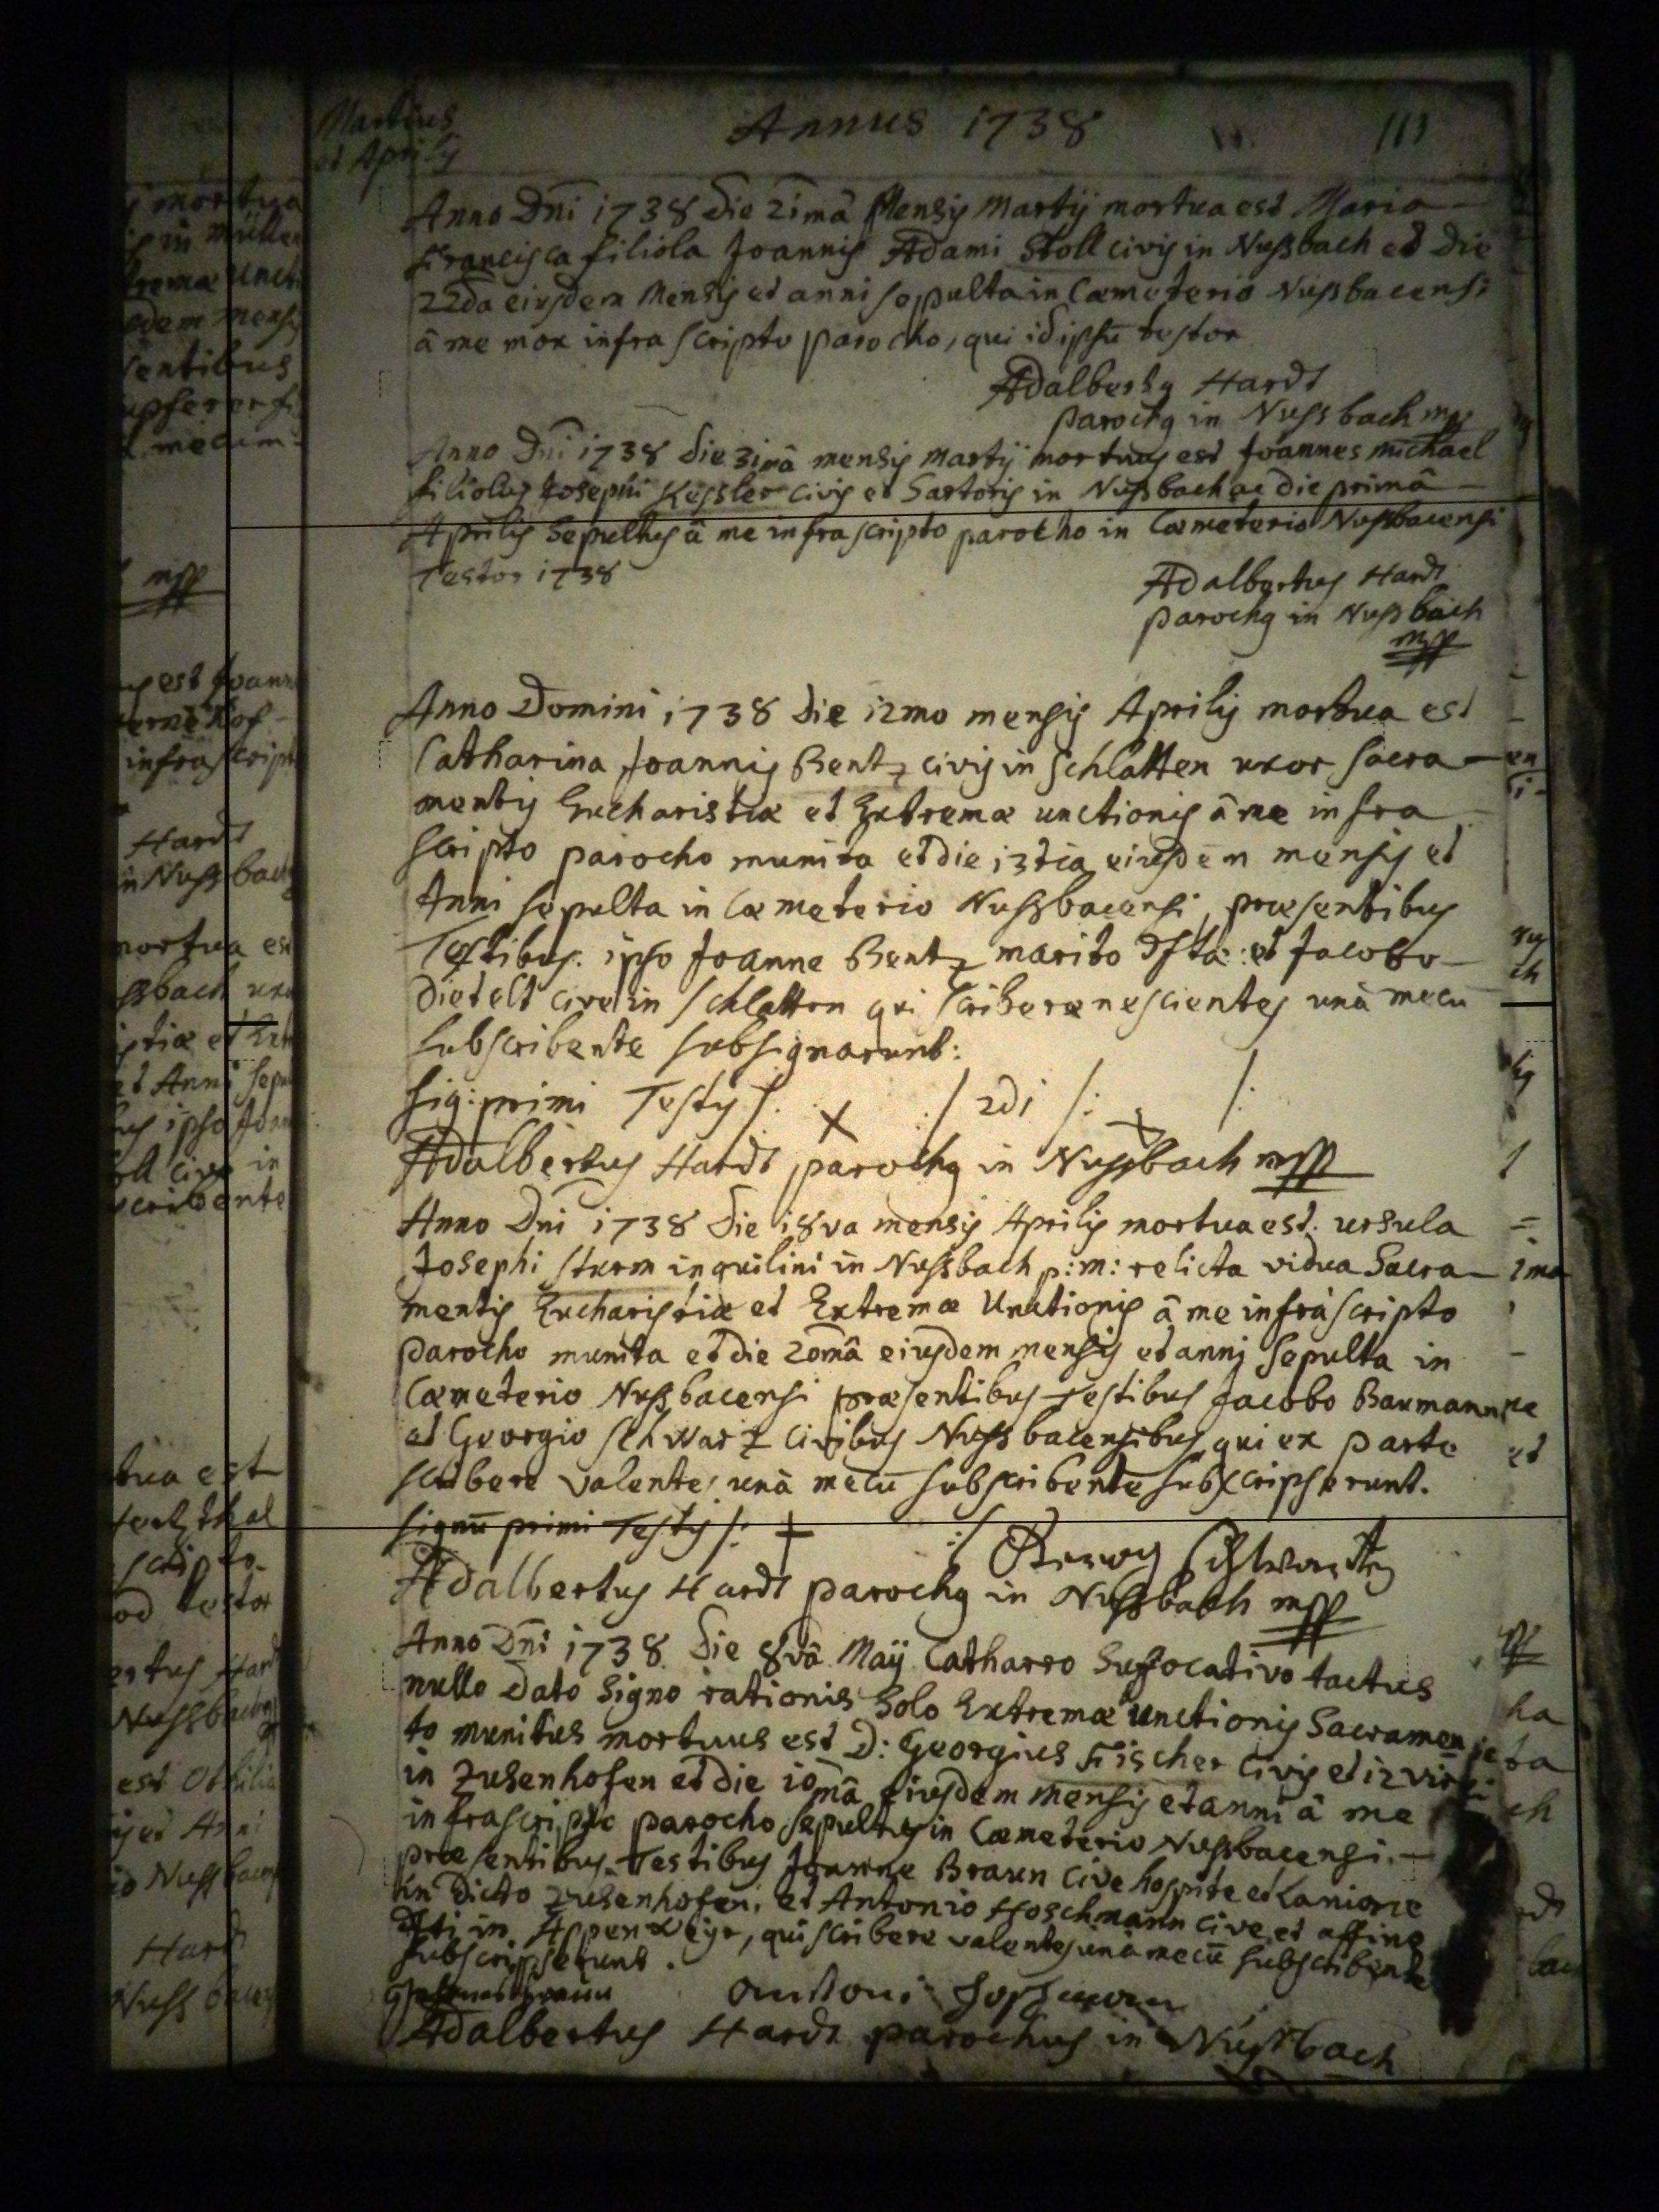 Martius
et Aprilis
Annus 1738
113
Anno Dni 1738 die 21mâ Mensis Martij mortua est Maria
Francisca filiola Joannis Adami Stoll civis in Nussbach et die
22da eiusdem Mensis et anni sepulta in Cœmeterio Nussbacensi
â me mox infra scripto parocho, qui id ipsū testor
Adalbertus Hardt
parochus in Nussbach mpp
Anno Dni 1738 die 31mâ mensis Martij mortuus est Joannes Michael
filiolus Josephi Kessler civis et Sartoris in Nussbach ac die primâ
Aprilis Sepultus â me infra scripto parocho in Cœmeterio Nussbacensi
Testor 1738
Adalbertus Hardt
parochus in Nussbach
mpp
Anno Domini 1738 die 12mo mensis Aprilis mortua est
Catharina Joannis Bentz civis in Schlatten uxor sacra-
mentis Eucharistiæ et Extremæ unctionis â me infra
scripto parocho munita et die 13tia eiusdem mensis et
Anni sepulta in Cœmeterio Nussbacensi, præsentibus
Testibus ipso Joanne Bentz marito dftæ: et Jacobo
Dietelt cive in Schlatten qui scribere nescientes unà mecū
subscribente subsignarunt:
sig: primi Testis /: X :/ 2di /: X :/
Adalbertus Hardt parochus in Nussbach mpp
Anno Dni 1738 die 18va mensis Aprilis mortua est Ursula
Josephi Sturm inquilini in Nussbach p: m: relicta vidua Sacra-
mentis Eucharistiæ et Extremæ Unctionis â me infrascripto
parocho munita et die 20mâ eiusdem mensis et anni sepulta in
Cœmeterio Nussbacensi præsentibus Testibus Jacobo Baumann
et Georgio Schwartz civibus Nussbacensibus qui ex parte
scribere valentes unà mecū subscribente subscripserunt.
signū primi Testis /: + :/ Schwartz
Adalbertus Hardt parochus in Nussbach mpp
Anno Dni 1738 die 8vâ Maij Catharro Suffocativo tactus
nullo dato Signo rationis Solo Extremæ Unctionis Sacramen
to munitus mortuus est D: Georgius Fischer Civis et 12vir
in Zusenhofen et die 10mâ eiusdem mensis et anni â me
infrascripto parocho sepultus in Cœmeterio Nussbacensi.
præsentibus Testibus Joanne Braun Cive hospite et Lanione
in dicto Zusenhofen, et Antonio Hoschmann cive et affine
dfti in Appenweyr, qui scribere valentes unà mecū subscribente
subscripserunt.
Antoni
Adalbertus Hardt parochus in Nussbach